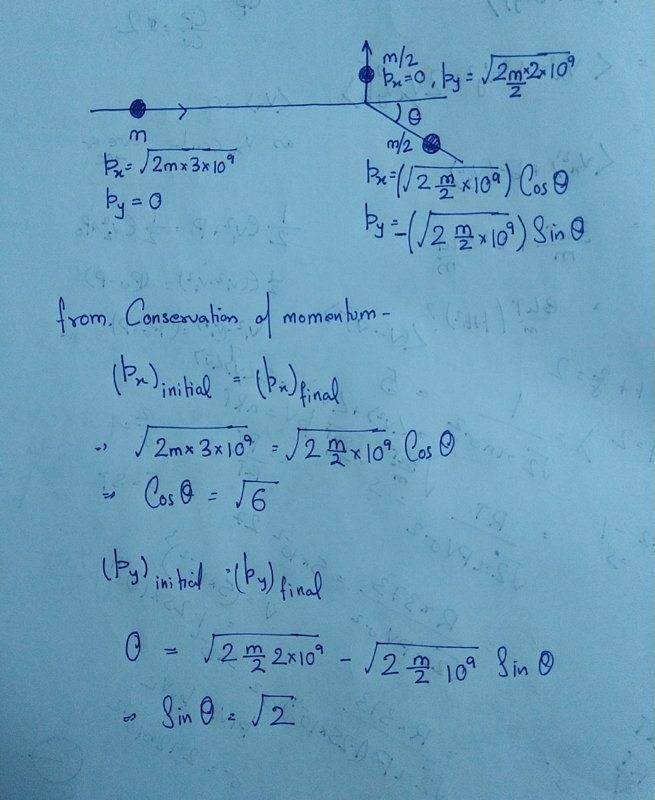 m/2
px=0, py = √(2 m/2 × 2×10⁹)
θ
m
m/2
px = √(2m×3×10⁹)
py = 0
px = (√(2 m/2 ×10⁹)) Cos θ
py = -(√(2 m/2 ×10⁹)) Sin θ
from Conservation of momentum -
(px)initial = (px)final
⇒ √(2m×3×10⁹) = √(2 m/2 ×10⁹) Cos θ
⇒ Cos θ = √6
(py)initial = (py)final
0 = √(2 m/2 2×10⁹) - √(2 m/2 10⁹) Sin θ
⇒ Sin θ = √2